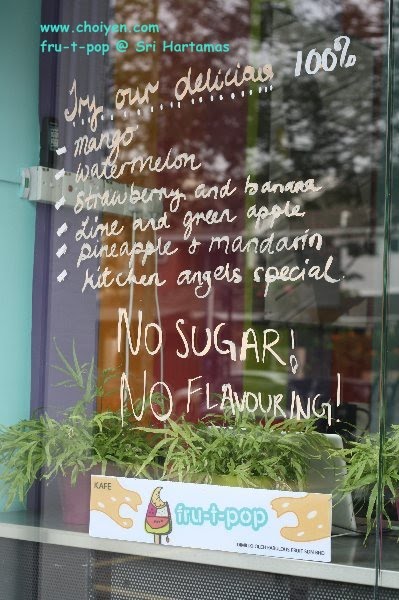 www.choiyen.com
fru-t-pop @ Sri Hartamas
Try our delicious 100%
- mango
- watermelon
- Strawberry and banana
- Lime and green apple
- pineapple & mandarin
- kitchen angels special
NO SUGAR!
NO FLAVOURING!
KAFE
fru-t-pop